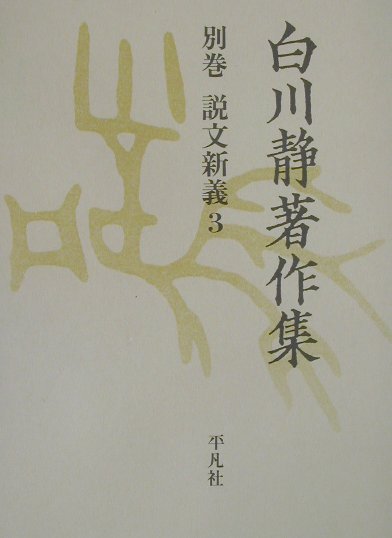 白川静著作集
別巻 説文新義3
平凡社